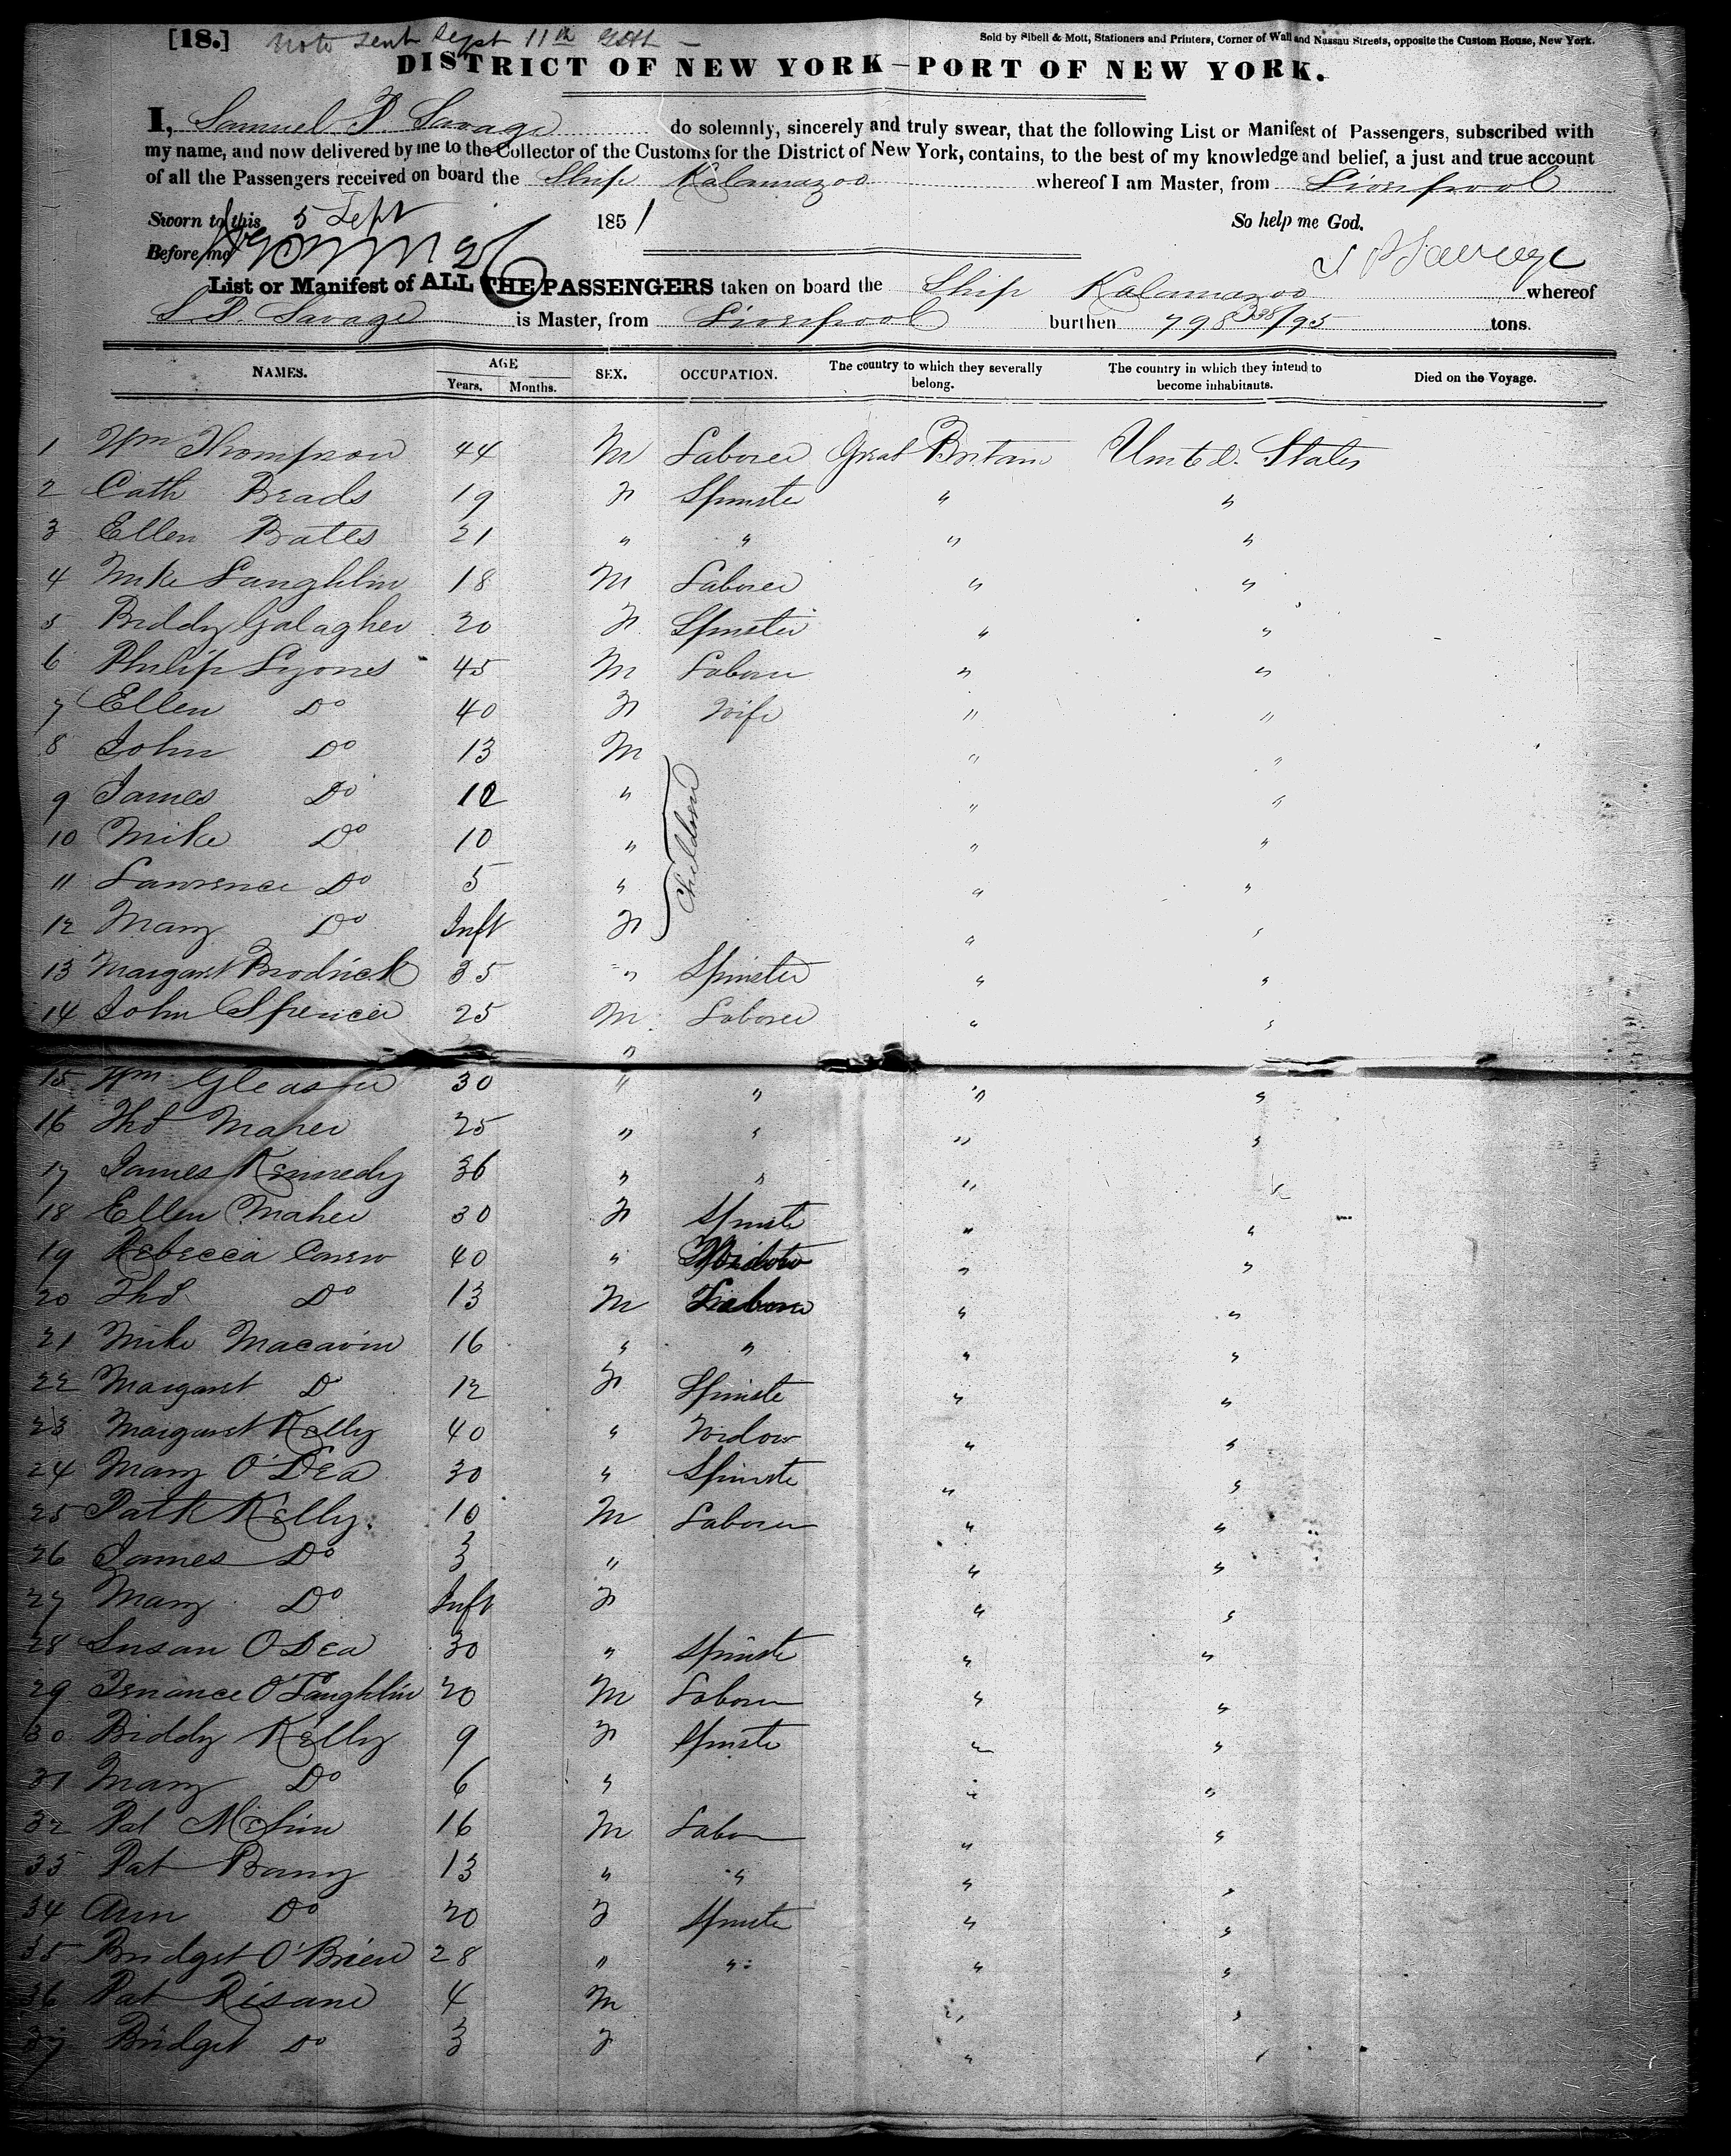 [18.] Note sent Sept 11th
Sold by Sibell & Mott, Stationers and Printers, Corner of Wall and Nassau Streets, opposite the Custom House, New York.
DISTRICT OF NEW YORK—PORT OF NEW YORK.
I, Samuel P. Savage do solemnly, sincerely and truly swear, that the following List or Manifest of Passengers, subscribed with
my name, and now delivered by me to the Collector of the Customs for the District of New York, contains, to the best of my knowledge and belief, a just and true account
of all the Passengers received on board the Ship Kalamazoo whereof I am Master, from Liverpool
Sworn to this 5 Sept 1851 So help me God.
Before me S P Savage
List or Manifest of ALL THE PASSENGERS taken on board the Ship Kalamazoo whereof
S. P. Savage is Master, from Liverpool burthen 798 38/95 tons.
NAMES. AGE Years. Months. SEX. OCCUPATION. The country to which they severally belong. The country in which they intend to become inhabitants. Died on the Voyage.
1 Wm Thompson 44 M Laborer Great Britain United States
2 Cath Beads 19 F Spinster " "
3 Ellen Bates 21 " " " "
4 Mike Laughlin 18 M Laborer " "
5 Biddy Galagher 20 F Spinster " "
6 Philip Lyons 45 M Laborer " "
7 Ellen Do 40 F Wife " "
8 John Do 13 M " "
9 James Do 12 " " "
10 Mike Do 10 " Children " "
11 Lawrence Do 5 " " "
12 Mary Do Inft F " "
13 Margaret Brodrick 35 " Spinster " "
14 John Spencer 25 M Laborer " "
15 Wm Gleason 30 " " " "
16 Thos Maher 25 " " " "
17 James Kennedy 36 " " " "
18 Ellen Maher 30 F Spinster " "
19 Rebecca Carew 40 " Widow " "
20 Thos Do 13 M Laborer " "
21 Mike Macavin 16 " " " "
22 Margaret D 12 F Spinster " "
23 Margaret Kelly 40 " Widow " "
24 Mary O'Dea 30 " Spinster " "
25 Patk Kelly 10 M Laborer " "
26 James Do 3 " " "
27 Mary Do Inft F " "
28 Susan O Dea 30 " Spinster " "
29 Terance O'Laughlin 20 M Laborer " "
30 Biddy Kelly 9 F Spinster " "
31 Mary Do 6 " " "
32 Pat 16 M Labor " "
33 Pat Barry 13 " " " "
34 Ann Do 20 F Spinster " "
35 Bridget O'Brien 28 " " " "
36 Pat Risane 4 M " "
37 Bridget Do 3 F " "